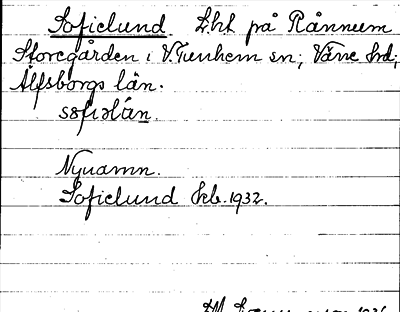 Sofielund. Lht på Rånneum
Storegården i V. Tunhem sn; Väne hd;
Älfsborgs län.
Nynamn.
Sofielund Jkb. 1932.